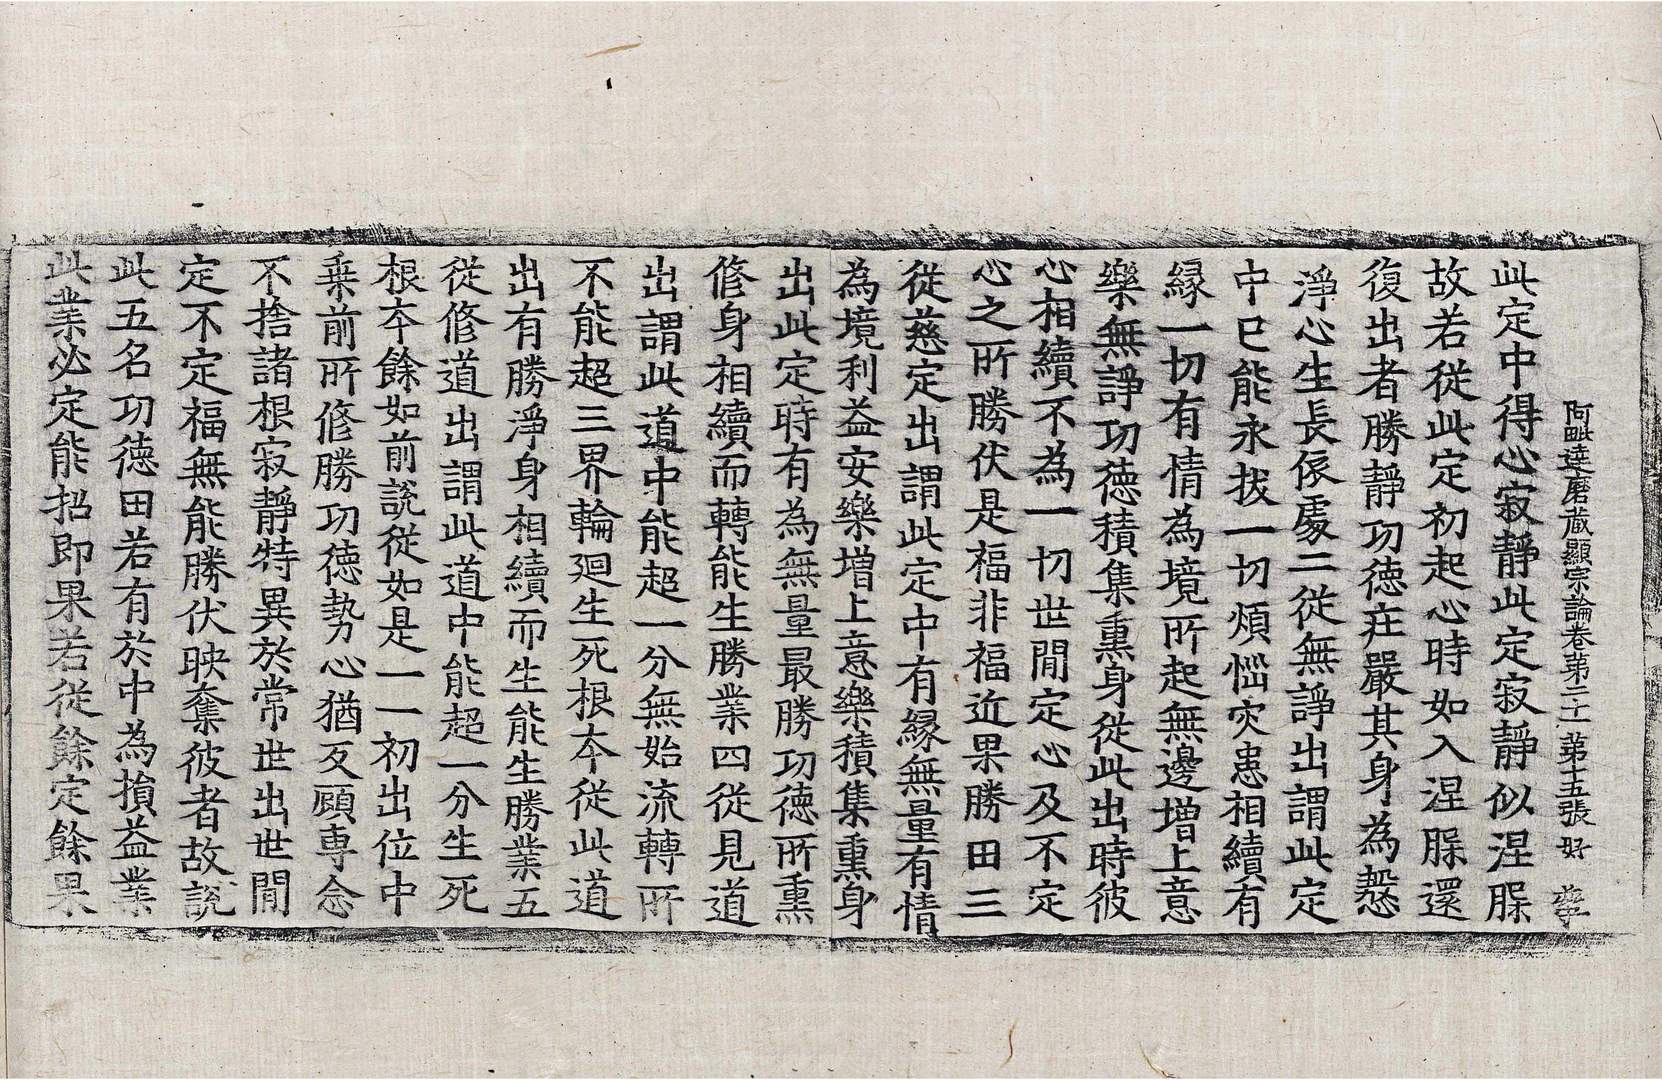 阿毗達磨蔵顯宗論卷第二十一 第十五張 好
此定中得心寂靜此定寂靜似涅脲
故若從此定初起心時如入涅脲還
復出者勝靜功徳庄嚴其身為慇
淨心生長依處二從無諍出謂此定
中巳能永拔一切煩惱灾患相續有
縁一切有情為境所起無邊增上意
樂無諍功徳積集熏身從此出時彼
心相續不為一切世間定心及不定
心之所勝伏是福非福近果勝田三
從慈定出謂此定中有縁無量有情
為境利益安樂增上意樂積集熏身
出此定時有為無量最勝功徳所熏
修身相續而轉能生勝業四從見道
出謂此道中能超一分無始流轉所
不能超三界輪廻生死根夲從此道
出有勝淨身相續而生能生勝業五
從修道出謂此道中能超一分生死
根夲餘如前說從如是一一初出位中
乗前所修勝功徳勢心猶反顧専念
不捨諸根寂靜特異於常世出世間
定不定福無能勝伏映奪彼者故説
此五名功徳田若有於中為損益業
此業必定能招即果若從餘定餘果